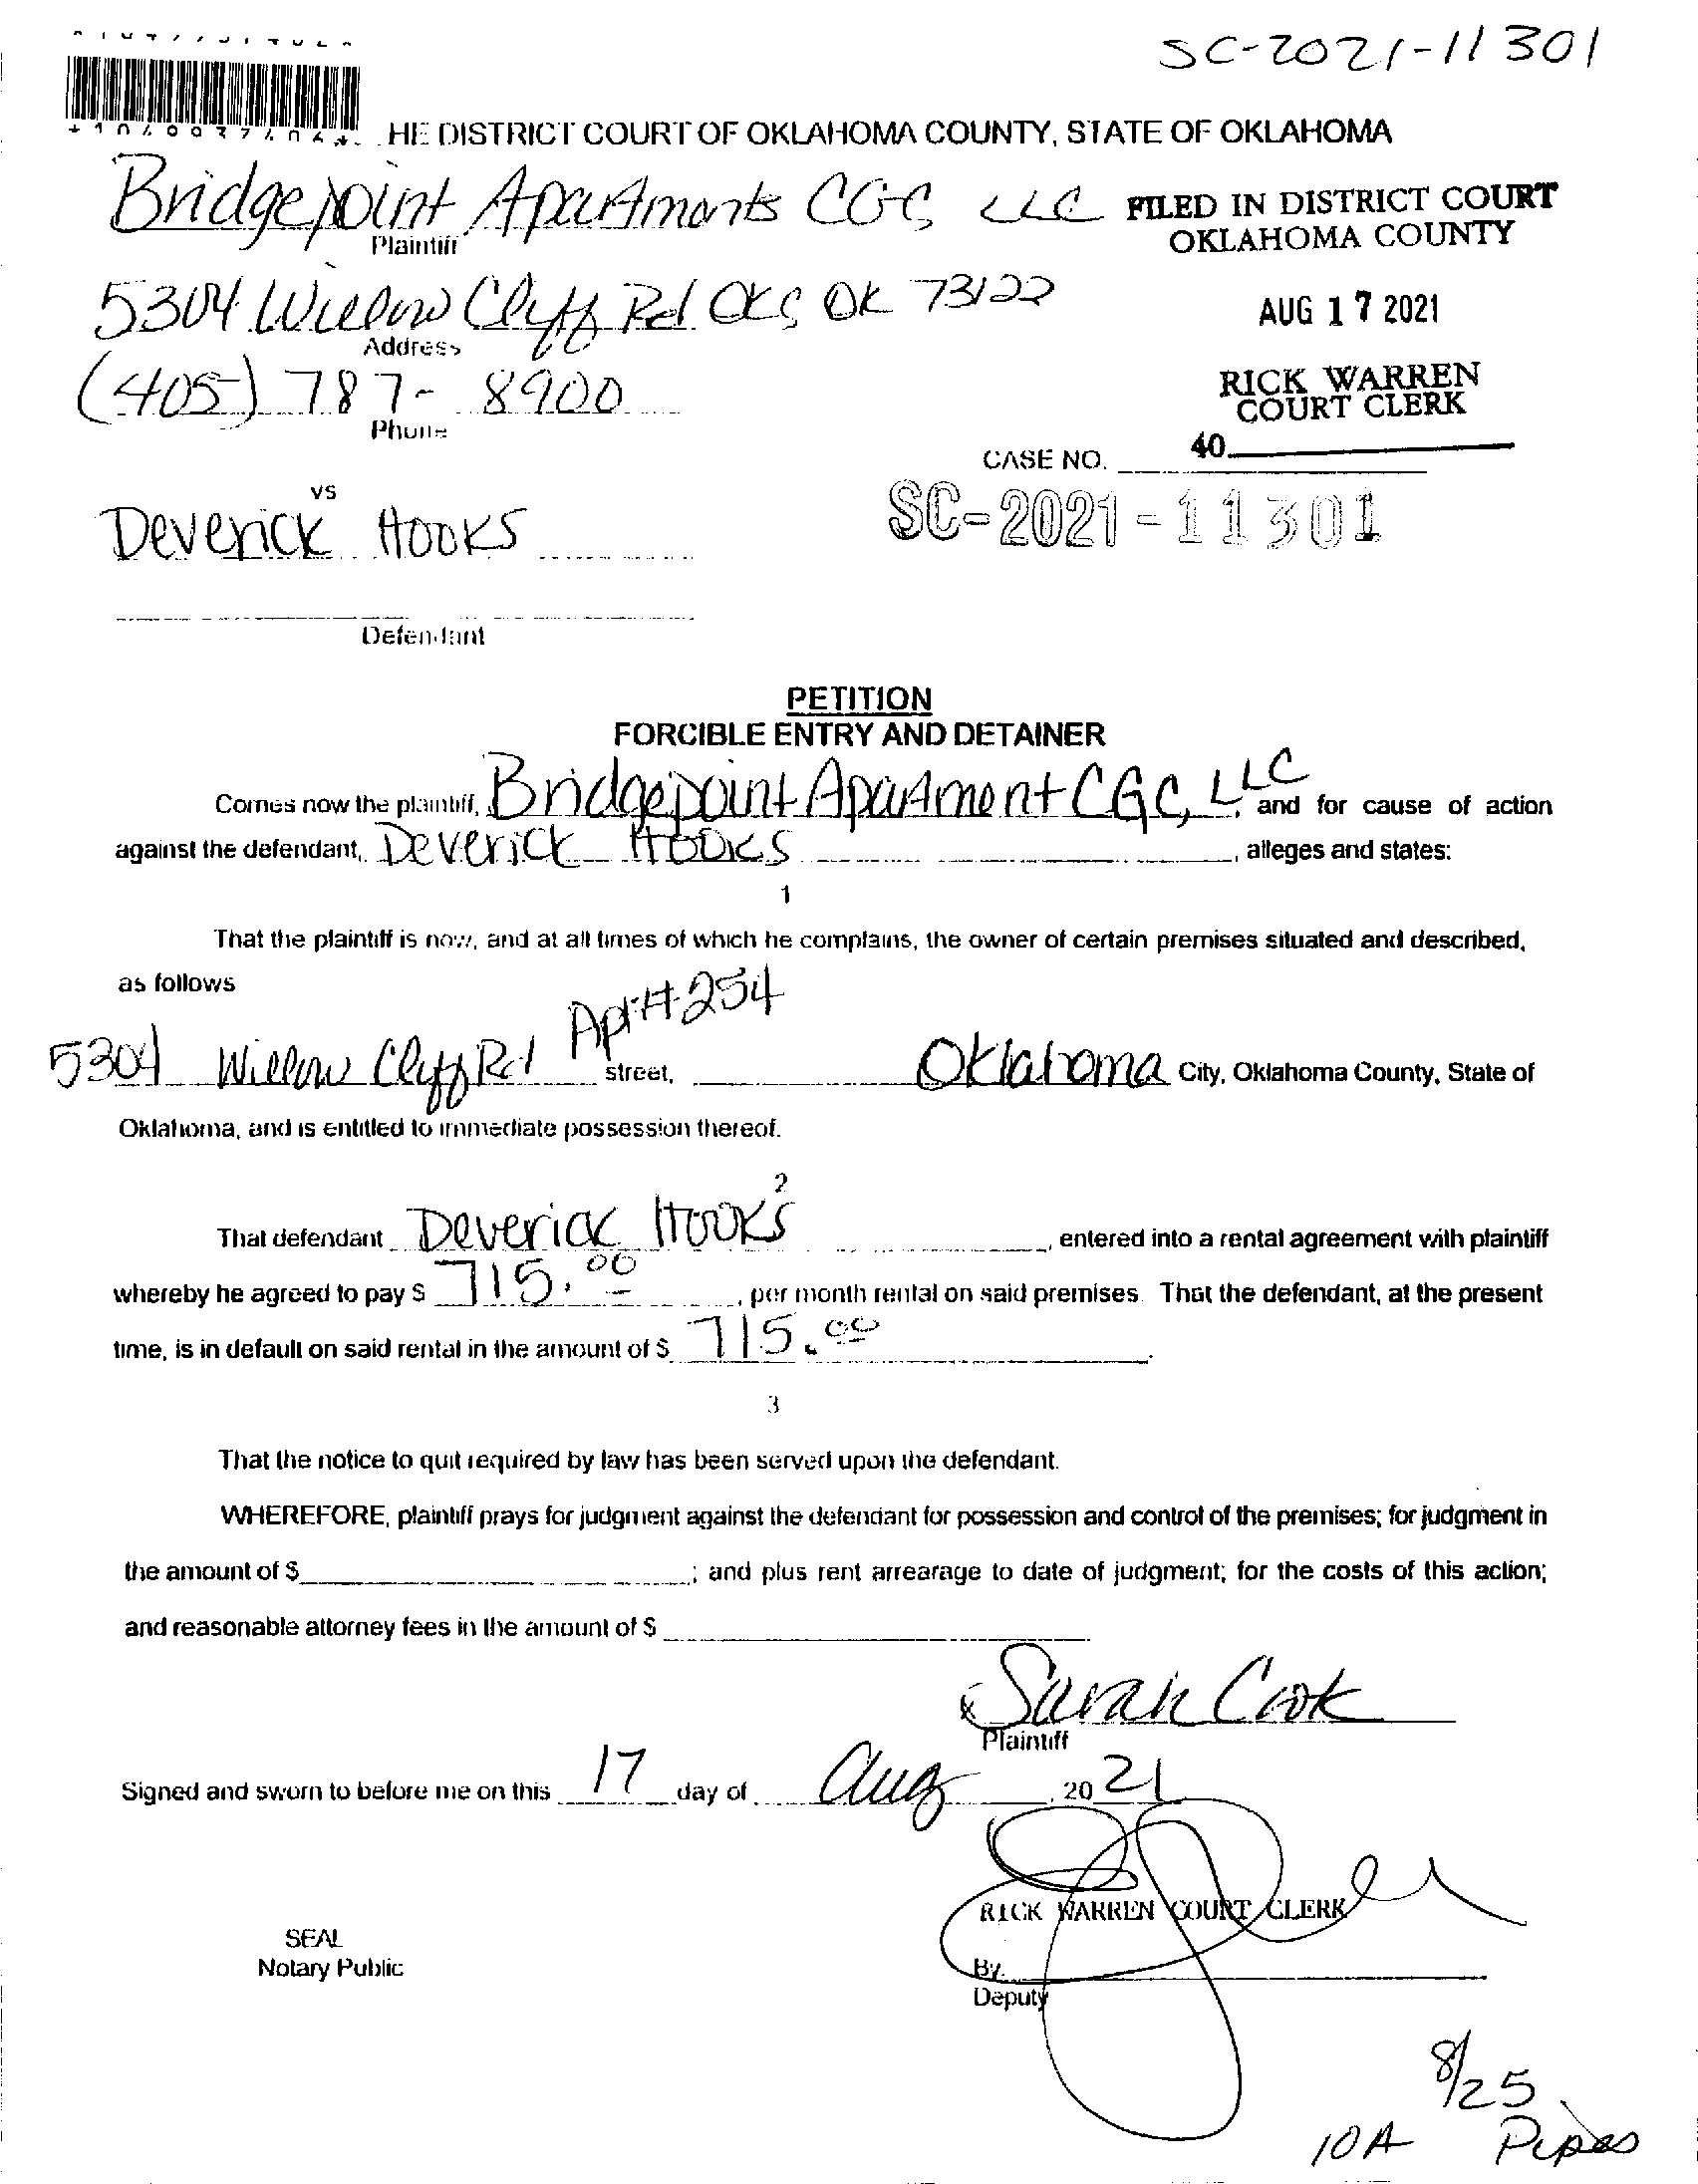 SC-2021-11301
HE DISTRICT COURT OF OKLAHOMA COUNTY, STATE OF OKLAHOMA
Bridgepoint Apartments CGC, LLC
Plaintiff
FILED IN DISTRICT COURT
OKLAHOMA COUNTY
5304 Willow Cliff Rd OKC OK 73122
Address
AUG 17 2021
(405) 787-8900
Phone
RICK WARREN
COURT CLERK
40
CASE NO.
SC-2021-11301
vs
Deverick Hooks
Defendant
PETITION
FORCIBLE ENTRY AND DETAINER
Comes now the plaintiff, Bridgepoint Apartment CGC, LLC, and for cause of action
against the defendant, Deverick Hooks, alleges and states:
1
That the plaintiff is now, and at all times of which he complains, the owner of certain premises situated and described,
as follows
5304 Willow Cliff Rd Apt#254 street, Oklahoma City, Oklahoma County, State of
Oklahoma, and is entitled to immediate possession thereof.
2
That defendant Deverick Hooks, entered into a rental agreement with plaintiff
whereby he agreed to pay $ 715.00, per month rental on said premises. That the defendant, at the present
time, is in default on said rental in the amount of $ 715.00.
3
That the notice to quit required by law has been served upon the defendant.
WHEREFORE, plaintiff prays for judgment against the defendant for possession and control of the premises; for judgment in
the amount of $ ; and plus rent arrearage to date of judgment; for the costs of this action;
and reasonable attorney fees in the amount of $
x Sarah Cook
Plaintiff
Signed and sworn to before me on this 17 day of Aug, 20 21
RICK WARREN COURT CLERK
SEAL
Notary Public
By.
Deputy
8/25
10A Pipes